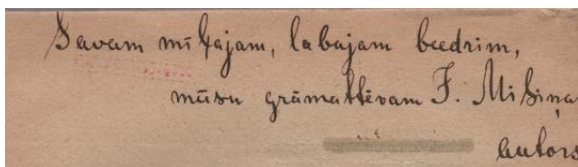 Savam mīļajam, labajam beedrim,
mūsu grāmattēvam J. Misiņa
autors